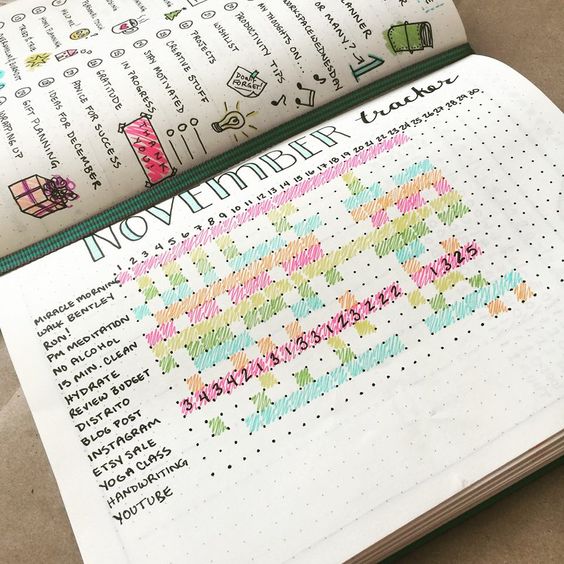 1 PLANNER
OR MANY?
WORKSPACEWEDNESDAY
MY THOUGHTS ON...
PRODUCTIVITY TIPS
WISHLIST
PROJECTS
CREATIVE STUFF
STAY MOTIVATED
IN PROGRESS
GRATITUDE
ADVICE FOR SUCCESS
IDEAS FOR DECEMBER
GIFT PLANNING
WRAPPING UP
DON'T FORGET!
THANK YOU
NOVEMBER tracker
1 2 3 4 5 6 7 8 9 10 11 12 13 14 15 16 17 18 19 20 21 22 23 24 25 26 27 28 29 30
MIRACLE MORNING
WALK BENTLEY
RUN!
PM MEDITATION
NO ALCOHOL
15 MIN. CLEAN
HYDRATE
REVIEW BUDGET
DISTRITO
BLOG POST
INSTAGRAM 3 4 3 4 2 1 3 1 3 3 1 2 3 2 2 2 1 3 2 5
ETSY SALE
YOGA CLASS
HANDWRITING
YOUTUBE